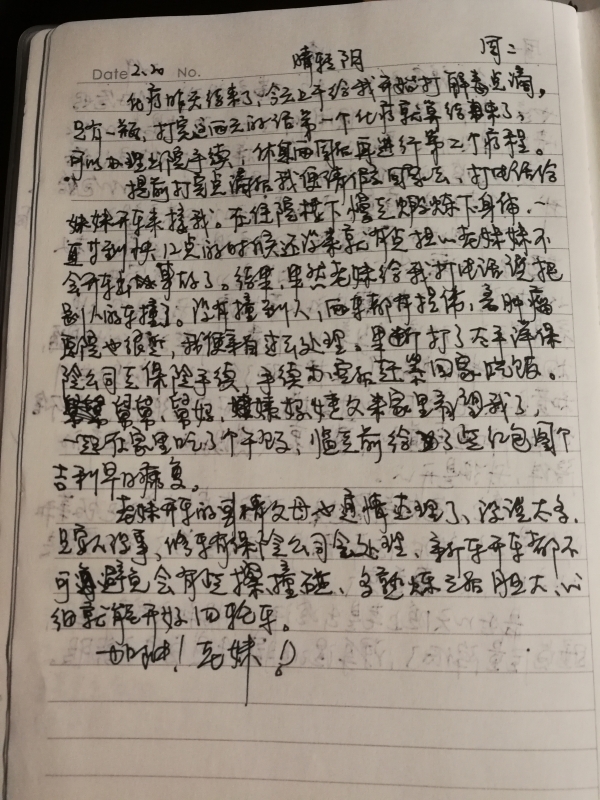 Date 2.20 No. 晴转阴 周二
化疗昨天结束了，今天上午给我开始打解毒点滴，
只有一瓶，打完这两天的话第一个化疗就算结束了，
可以办理出院手续，休息两周后再进行第二个疗程。
提前打完点滴后我便请假回家去，打电话给
妹妹开车来接我。在住院楼下慢走锻炼下身体，一
直等到快12点的时候还没来就有点担心老妹妹不
会开车出事故了。结果，果然老妹给我打电话说把
别人的车撞了。没有撞到人，两车都有损伤，
医院也很近，我便亲自过去处理。果断打了太平洋保
险公司走保险手续，手续办完后赶紧回家吃饭。
舅舅、舅妈、来家里看望我了，
一起在家里吃了个午饭，临走前给了些红包图个
吉利早日康复。
老妹开车的事情父母也通情达理了，没说太多，
只要人没事，修车有保险公司会处理，新车开车都不
可避免会有些擦撞碰，多熟练之后胆大、心
细就能开好四轮车。
加油！老妹！